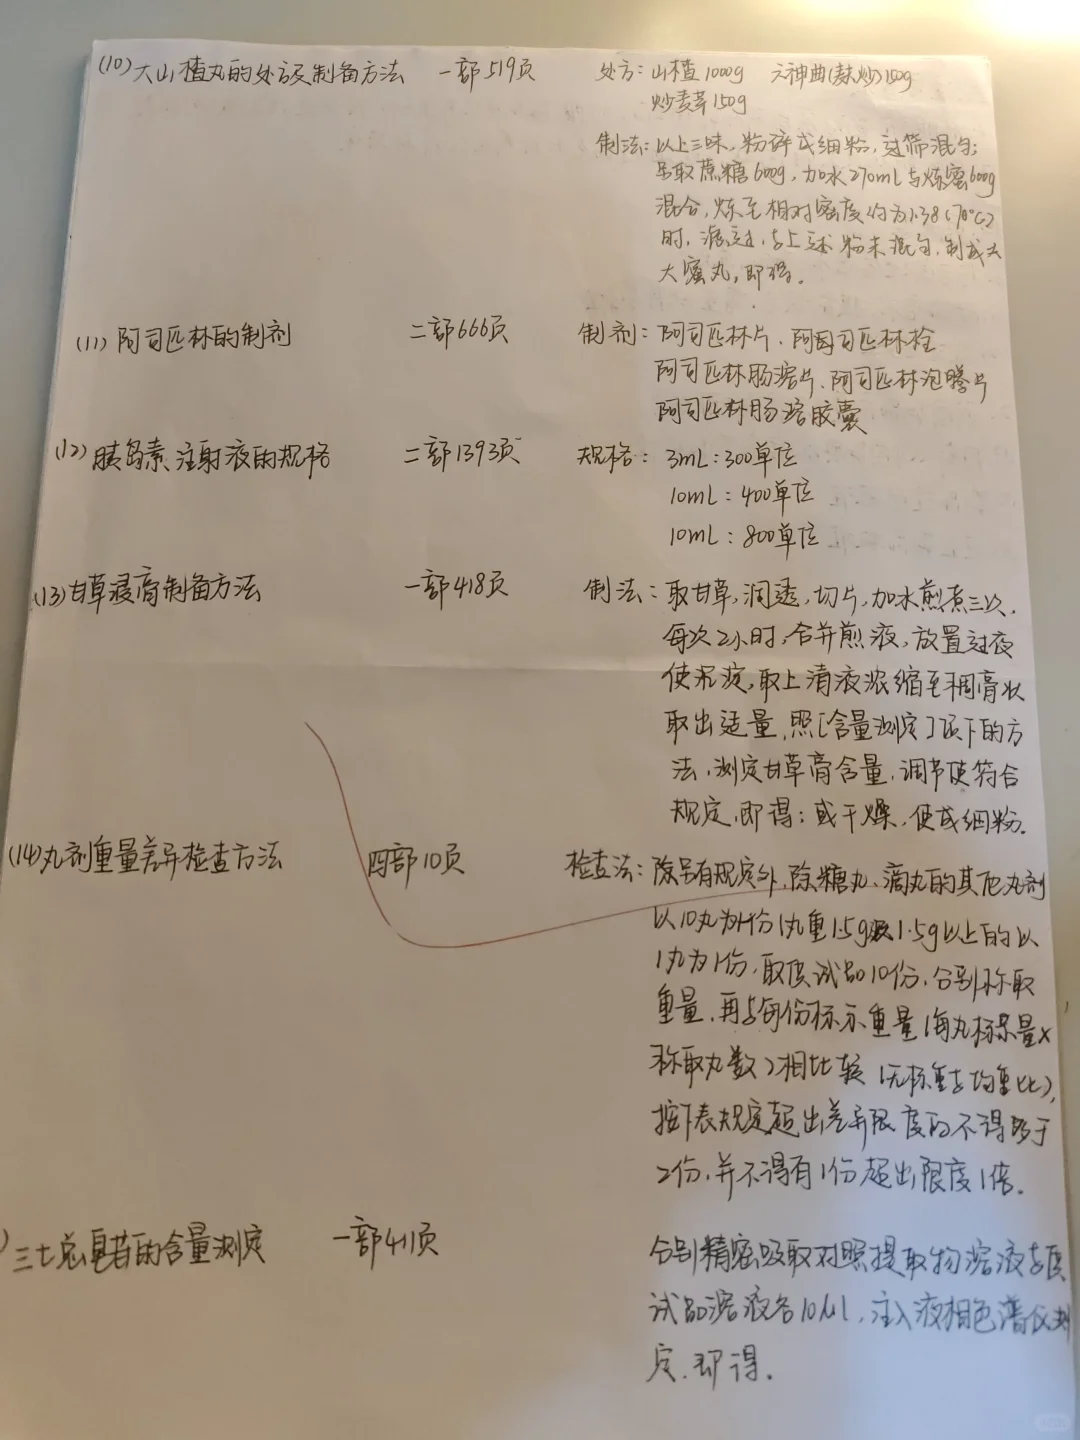 (10)大山楂丸的处方及制备方法 一部519页 处方:山楂1000g 六神曲(麸炒)150g
炒麦芽150g
制法:以上三味,粉碎成细粉,过筛混匀;
另取蔗糖600g,加水270mL与炼蜜600g
混合,炼至相对密度约为1.38(70℃)
时,滤过,与上述粉末混匀,制成大
大蜜丸,即得。
(11)阿司匹林的制剂 二部666页 制剂:阿司匹林片、阿司匹林栓
阿司匹林肠溶片、阿司匹林泡腾片
阿司匹林肠溶胶囊
(12)胰岛素注射液的规格 二部1393页 规格:3mL:300单位
10mL:400单位
10mL:800单位
(13)甘草浸膏制备方法 一部418页 制法:取甘草,润透,切片,加水煎煮三次,
每次2小时,合并煎液,放置过夜
使沉淀,取上清液浓缩至稠膏状
取出适量,照[含量测定]项下的方
法,测定甘草膏含量,调节使符合
规定,即得;或干燥,使成细粉。
(14)丸剂重量差异检查方法 四部10页 检查法:除另有规定外,除糖丸、滴丸的其他丸剂
以10丸为1份1丸重1.5g及1.5g以上的以
1丸为1份,取供试品10份,分别称取
重量,再与每份标示重量(每丸标示量×
称取丸数)相比较(无标重与均重比),
按下表规定超出差异限度的不得多于
2份,并不得有1份超出限度1倍。
)三七总皂苷的含量测定 一部411页 分别精密吸取对照提取物溶液与供
试品溶液各10μl,注入液相色谱仪测
定,即得。